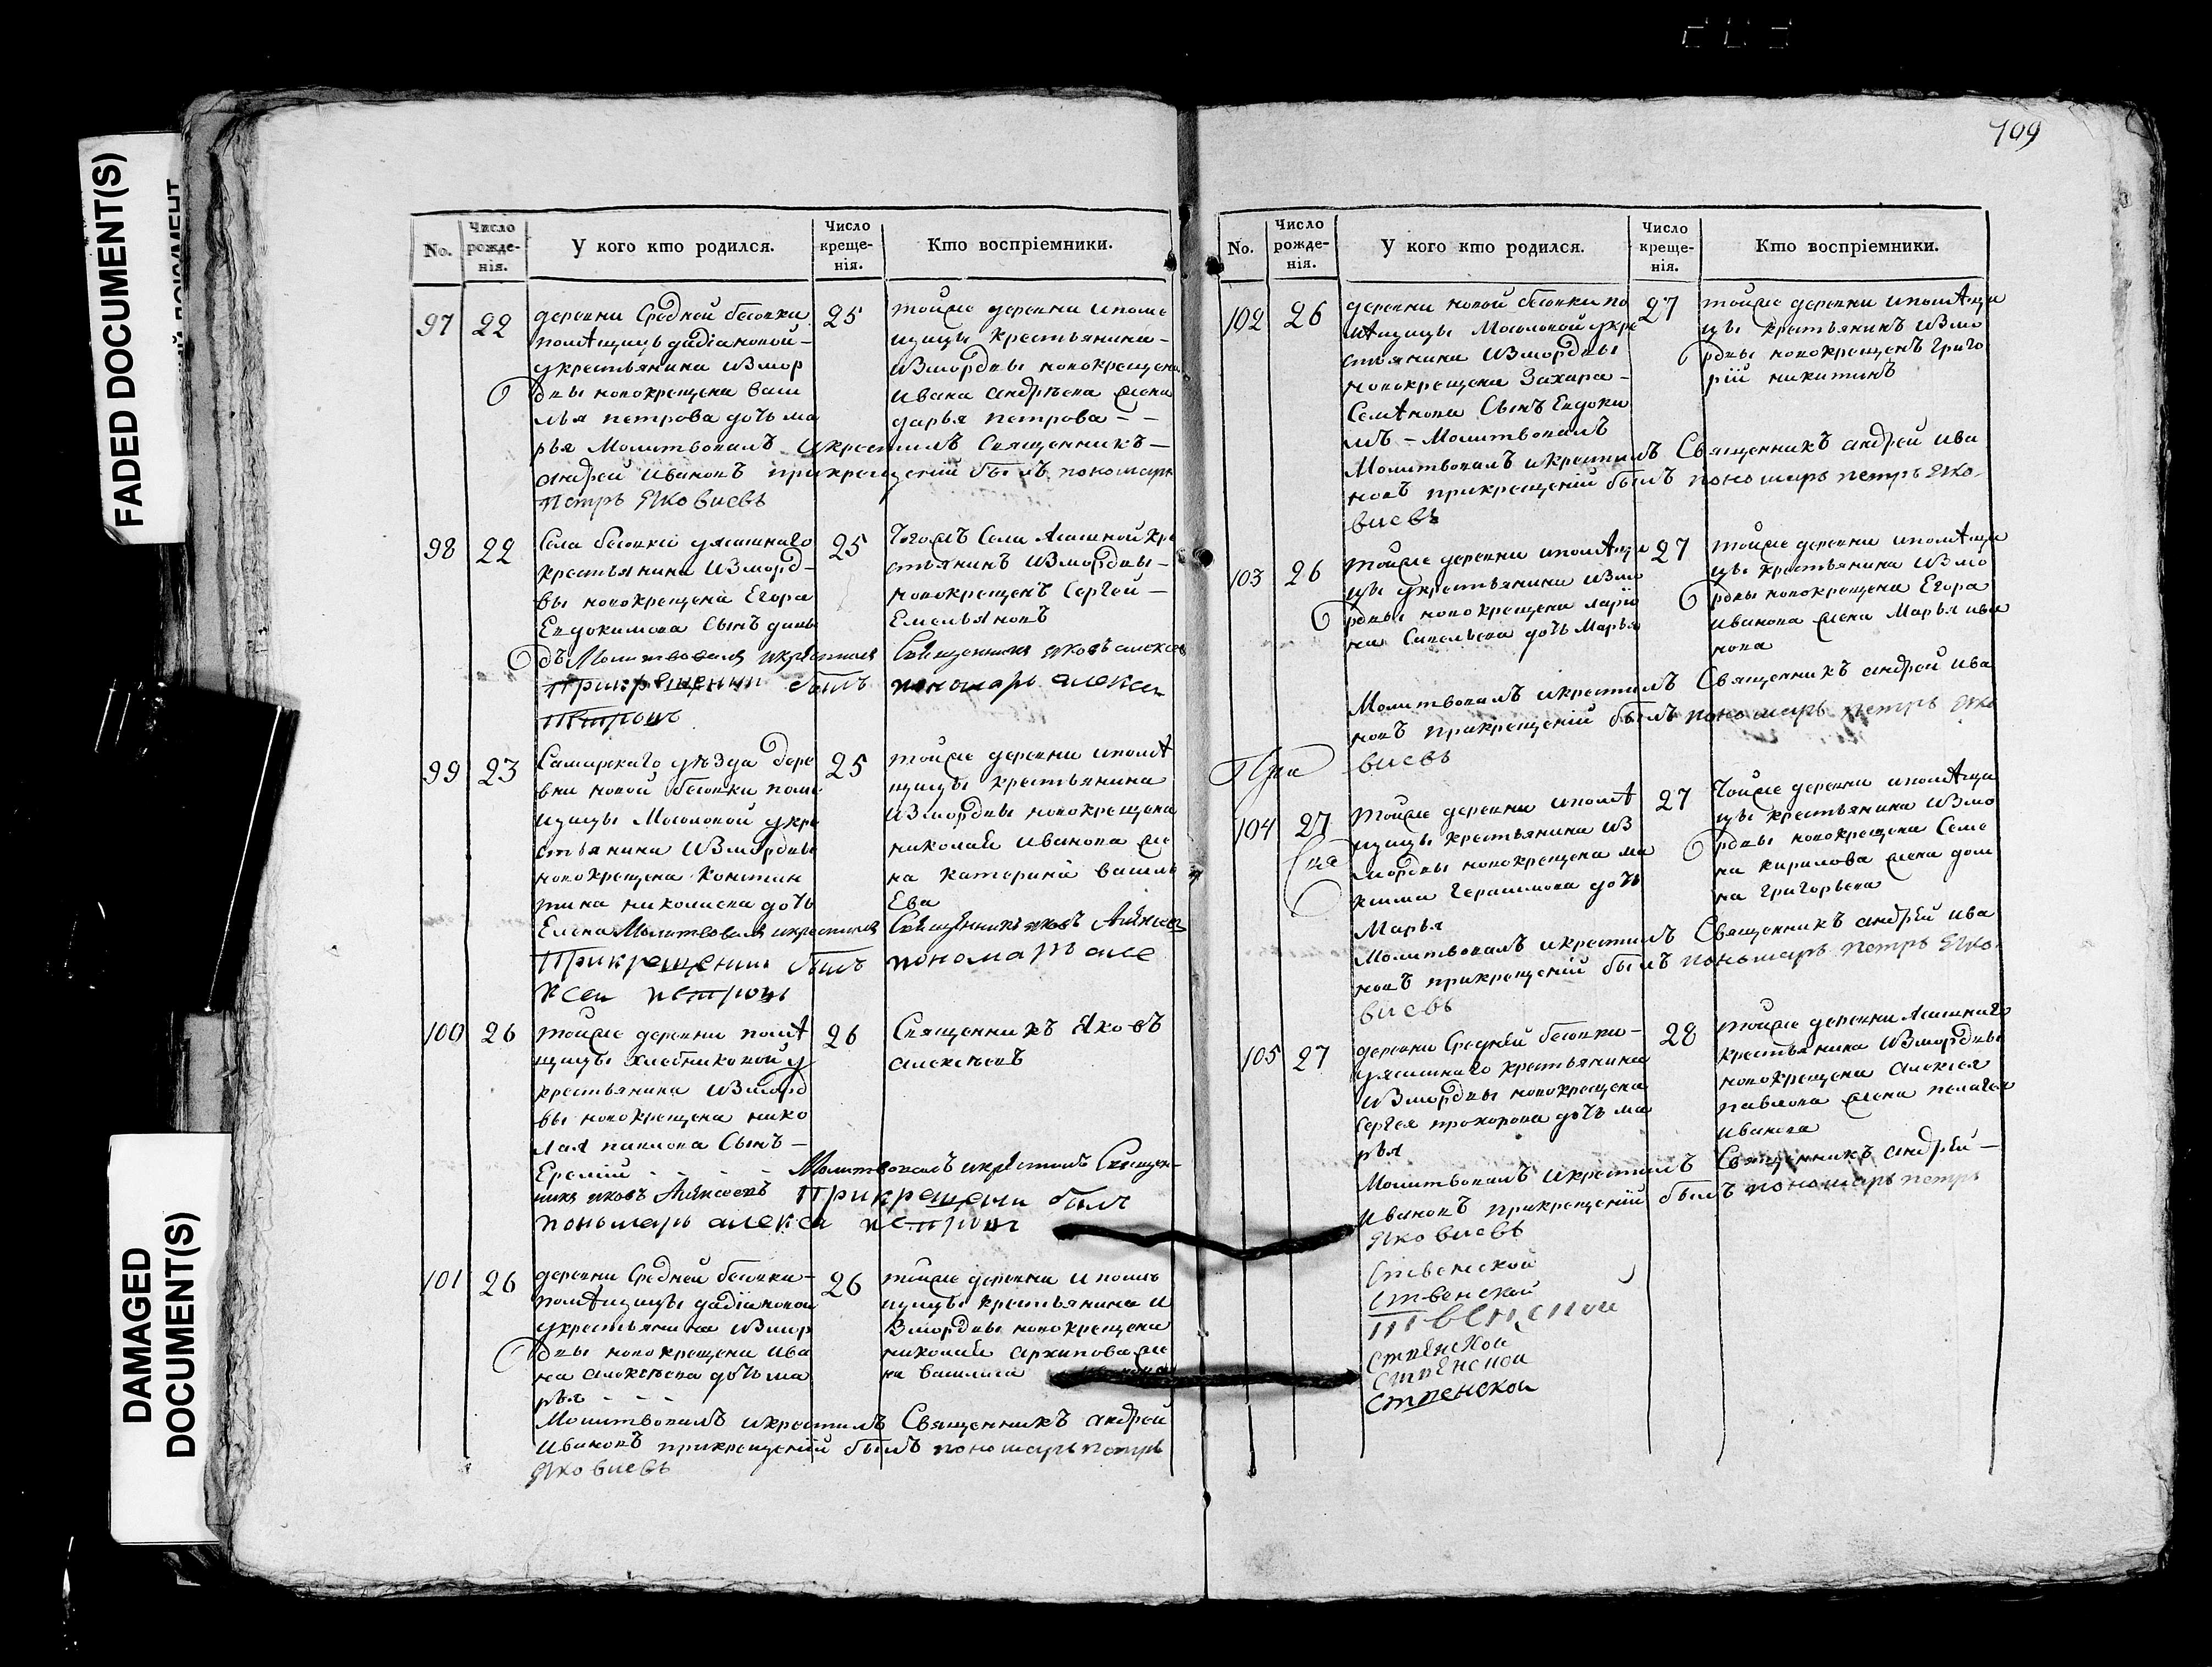 FADED DOCUMENT(S)
DAMAGED
DOCUMENT(S)
109
No.
Число рожде-нія.
У кого кто родился.
Число креще-нія.
Кто воспріемники.
97 22 25
деревни Средней бесовки
помѣщицъ дадiановой -
укрестьянина измор
двы новокрещена васи
лья петрова дочь ма
рья Молитвовалъ икрестилъ Священникъ -
андрей Ивановъ прикрещений былъ пономарь
петръ Яковлевъ
тойже деревни ипоме
щицы крестьянина -
измордвы новокрещена
ивана андрѣева жена
дарья петрова - -
98 22 25
Села бесовки уясашнаго
крестьянина измord-
вы новокрещена Егора
Евдокимова Сынъ давы
дъ Молитвовалъ икрестилъ Священникъ яковъ алексѣев
Прикрещении былъ пономарь алексѣи
петровъ
тогожъ Села Ясашной кре
стьянинъ измордвы -
новокрещенъ Сергей -
Емельяновъ
99 23 25
Самарскаго уѣзда дере
вни новой бесовки поме
щицы Мосоловой укре
стьянина измордвы
новокрещена констан
тина николаева дочь
Елена Молитвовалъ икрестилъ Священникъ яковъ Алѣксѣевъ
Прикрещении былъ пономарь але
ксеи петровъ
тойже деревни ипомѣ
щицы крестьянина
измордвы новокрещена
николая Иванова же
на катерина василь
Ева
100 26 26
тойже деревни помѣ
щицы хлебниковой у
крестьянина изморд
вы новокрещена нико
лая павлова Сынъ -
Еремiй - - - - Молитвовалъ икрѣстилъ Священ-
никъ яковъ Алѣксеевъ Прикрещении былъ
пономарь алексѣи петровъ
Священникъ Яковъ
алексѣевъ
101 26 26
деревни Средней бесовки -
помѣщицы дадiановой
укрестьянина измор
двы новокрещена ива
на алексѣева дочь ма
рья - - -
Молитвовалъ икрестилъ Священникъ андрей
Ивановъ прикрещений былъ пономарь петръ
Яковлевъ
тойже деревни ипомѣ
щицы крестьянина и
змордвы новокрещена
николая архипова же
на василиса
No.
Число рожде-нія.
У кого кто родился.
Число креще-нія.
Кто воспріемники.
102 26 27
деревни новой бесовки по
мѣщицы Мосоловой укре
стьянина измордвы
новокрещена Захара -
Семѣнова Сынъ Евдоки
мъ - Молитвовалъ
Молитвовалъ икрестилъ Священникъ андрей ива
новъ прикрещений былъ пономарь петръ Яко-
влевъ
тойже деревни ипомѣщи
цы крестьянинъ измо
рдвы новокрещенъ григо
рiй никитинъ
103 26 27
тойже деревни ипомѣщи
цы укрестьянина измо
рдвы новокрещена ларiо
на Савельева дочь Марья
Молитвовалъ икрестилъ Священникъ андрей ива
новъ прикрещений былъ пономарь петръ Яко
влевъ
тойже деревни ипомѣщи
цы крестьянина измо
рдвы новокрещена Егора
иванова жена Марья ива
нова
104 27 27
тойже деревни ипомѣ
щицы крестьянина из
мордвы новокрещена ма
ксима Герасимова дочь
Марья
Молитвовалъ икрестилъ Священникъ андрей ива
новъ прикрещений былъ пономарь петръ Яко-
влевъ
тойже деревни ипомѣщи
цы крестьянина измо
рдвы новокрещена Семе
на кирилова жена дом
на григорьева
105 27 28
деревни Средней бесовки -
уясашнаго крестьянина
измордвы новокрещена
Сергея прохорова дочь ма
рья
Молитвовалъ икрестилъ Священникъ андрей -
Ивановъ прикрещений былъ пономарь петръ
Яковлевъ
тойже деревни Ясашнаго
крестьянина измордвы
новокрещена алексея
павлова жена пелагея
иванова
Ставенской
Ствѣнской
ствѣнской
Ствѣнской